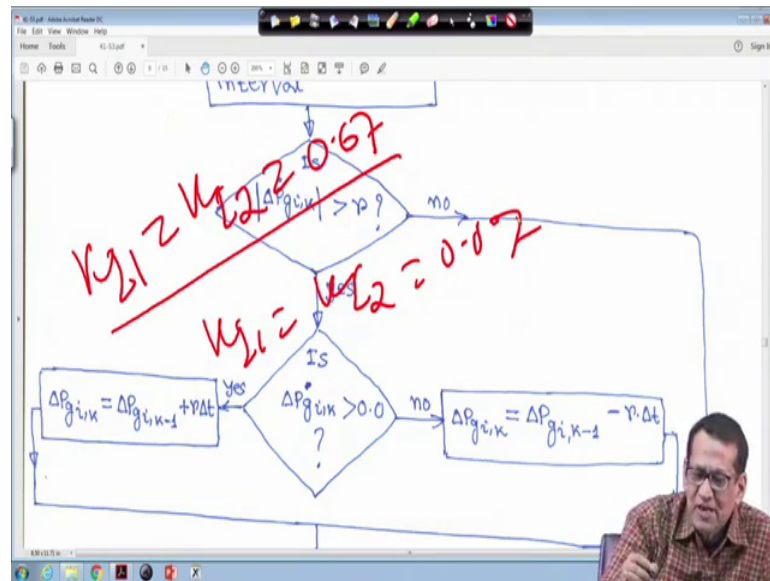 41-53.pdf - Adobe Acrobat Reader DC
File Edit View Window Help
Home Tools 41-53.pdf × Sign In
8 / 15 200%
interval
Is
|ΔṖgi,k| > r ?
no
yes
K_I1 = K_I2 = 0.67
K_I1 = K_I2 = 0.07
Is
ΔṖgi,k > 0.0
?
yes
no
ΔPgi,k = ΔPgi,k-1 + r.Δt
ΔPgi,k = ΔPgi,k-1 - r.Δt
8.50 x 11.71 in